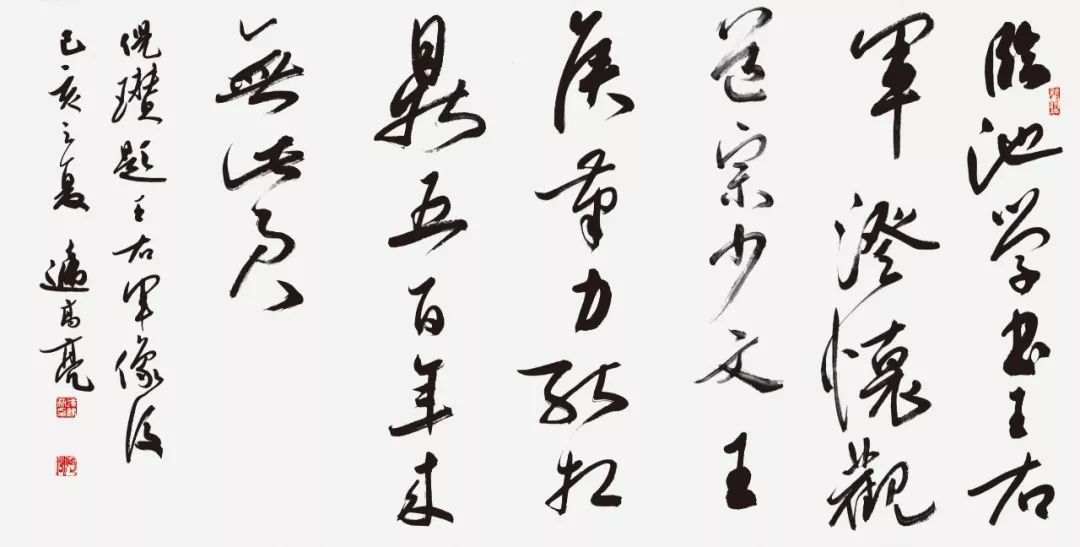 臨池学书王右
軍澄懷觀
道宗少文王
侯筆力能扛
鼎五百年来
無此君
倪瓚题王右軍像後
己亥之夏 高亮